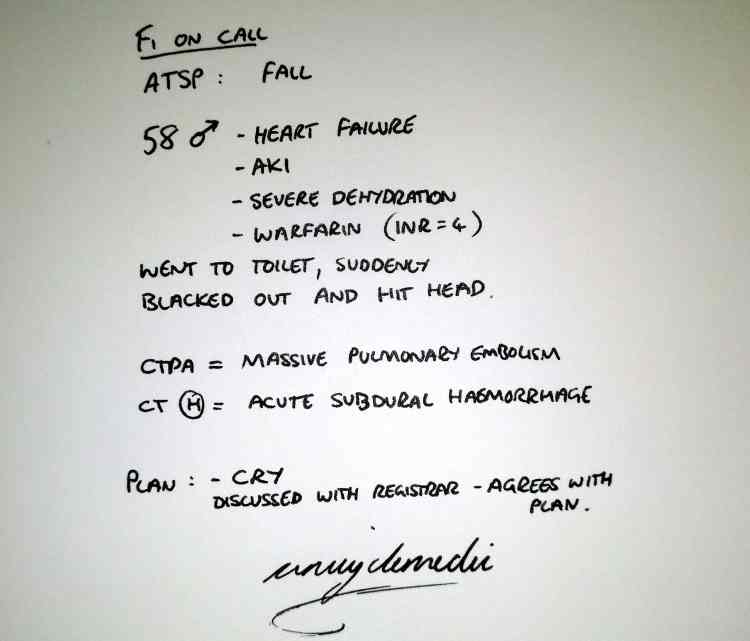 F1 ON CALL
ATSP: FALL
58 ♂ - HEART FAILURE
- AKI
- SEVERE DEHYDRATION
- WARFARIN (INR = 4)
WENT TO TOILET, SUDDENLY
BLACKED OUT AND HIT HEAD.
CTPA = MASSIVE PULMONARY EMBOLISM
CT Ⓗ = ACUTE SUBDURAL HAEMORRHAGE
PLAN: - CRY
DISCUSSED WITH REGISTRAR - AGREES WITH
PLAN.